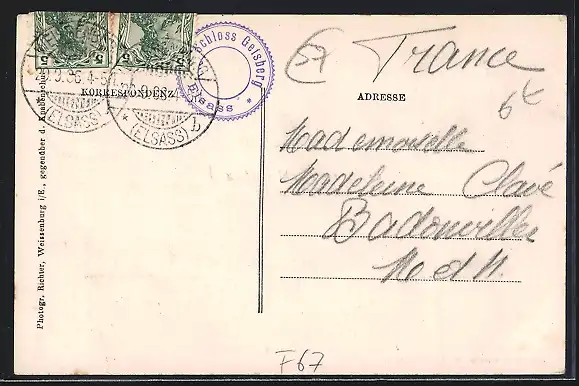 5 5
Schloss Geisberg
Elsass *
(ELSASS)
* (ELSASS) b
KORRESPONDENZ
France
6€
ADRESSE
Mademoiselle
Madeleine Clavé
Badonviller
M et M.
Photogr. Richter, Weissenburg i/E., gegenüber d. Knabenschule
F67